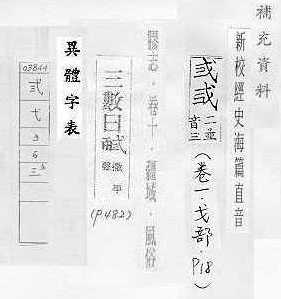 補充資料
新校經史海篇直音
二並音三(卷一·戈部·P18)
志·卷十·疆域·風俗
三數曰
(P.482)
異體字表
03844
弎
弋
3
6
三